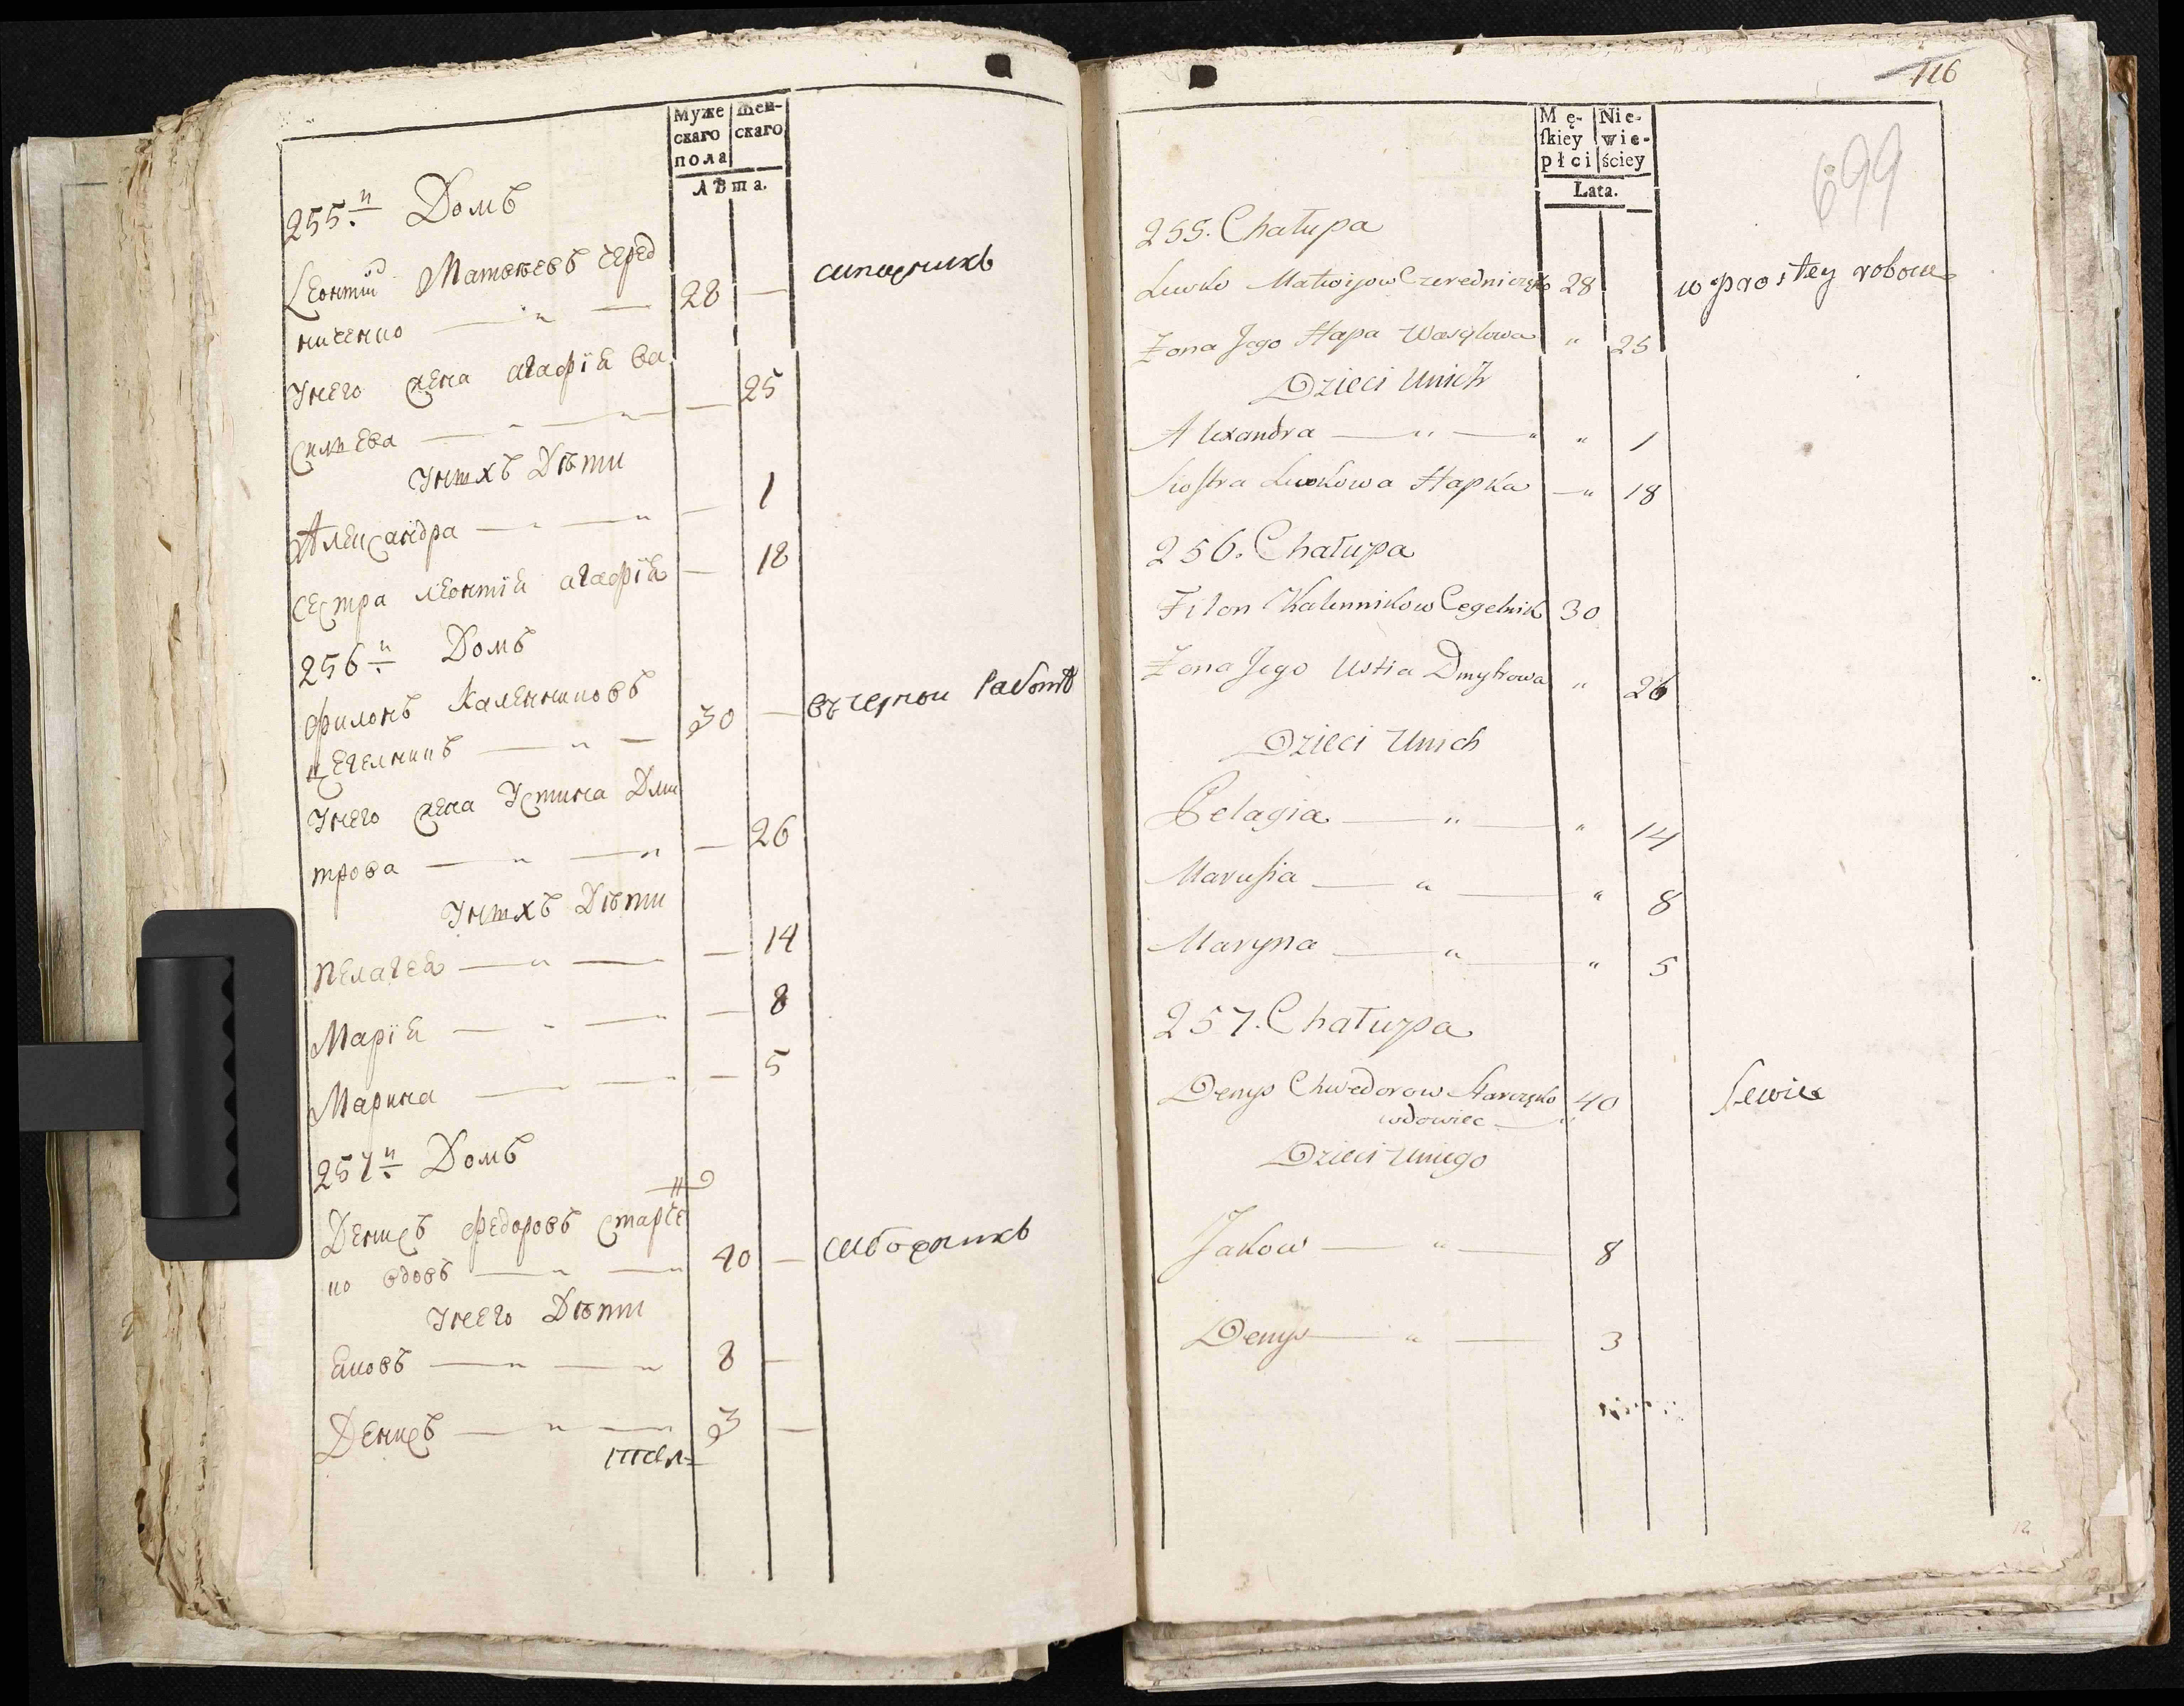 Муже
скаго
пола
Жен-
скаго
Лѣта.
255.й Домъ
Леонтий Матвѣевъ Черед
ниченко — „ — 28 —
Унего жена агафія Ва
сильева — „ — „ — 25
Унихъ Дѣти
Александра — „ — „ — 1
Сестра леонтія агафія — 18
256.й Домъ
Филонъ Каленниковъ
Цегелникъ — „ — 30 — въ черной работѣ
Унего жена Устина Дми
трова — „ — „ — 26
Унихъ Дѣти
Пелагея — „ — — 14
Марія — „ — „ — 8
Марина — — „ — 5
257й Домъ
Денисъ Федоровъ Старчен
ко вдовъ — „ — „ 40 —
Унего Дѣти
Яковъ — „ — „ 8 —
Денисъ — „ — „ 3 —
116
699
Mę-
ſkiey
płci
Nie-
wie-
ściey
Lata.
255. Chałupa
Lewko Matwijow Czeredniczęko 28 w prostey robocie
Żona Jego Hapa Wasylowa „ 25
Dzieci Unich
Alexandra — „ — „ „ 1
Siostra Lewkowa Hapka — „ 18
256. Chałupa
Filon Kalennikow Cegelnik 30
Żona Jego Ustia Dmytrowa „ 26
Dzieci Unich
Pelagia — „ — „ 14
Marusia — „ — „ 8
Maryna — „ — „ 5
257. Chałupa
Denys Chwedorow Starczęko 40 ſewiec
wdowiec — „
Dzieci Uniego
Jakow — „ — 8
Denys — „ — 3
12